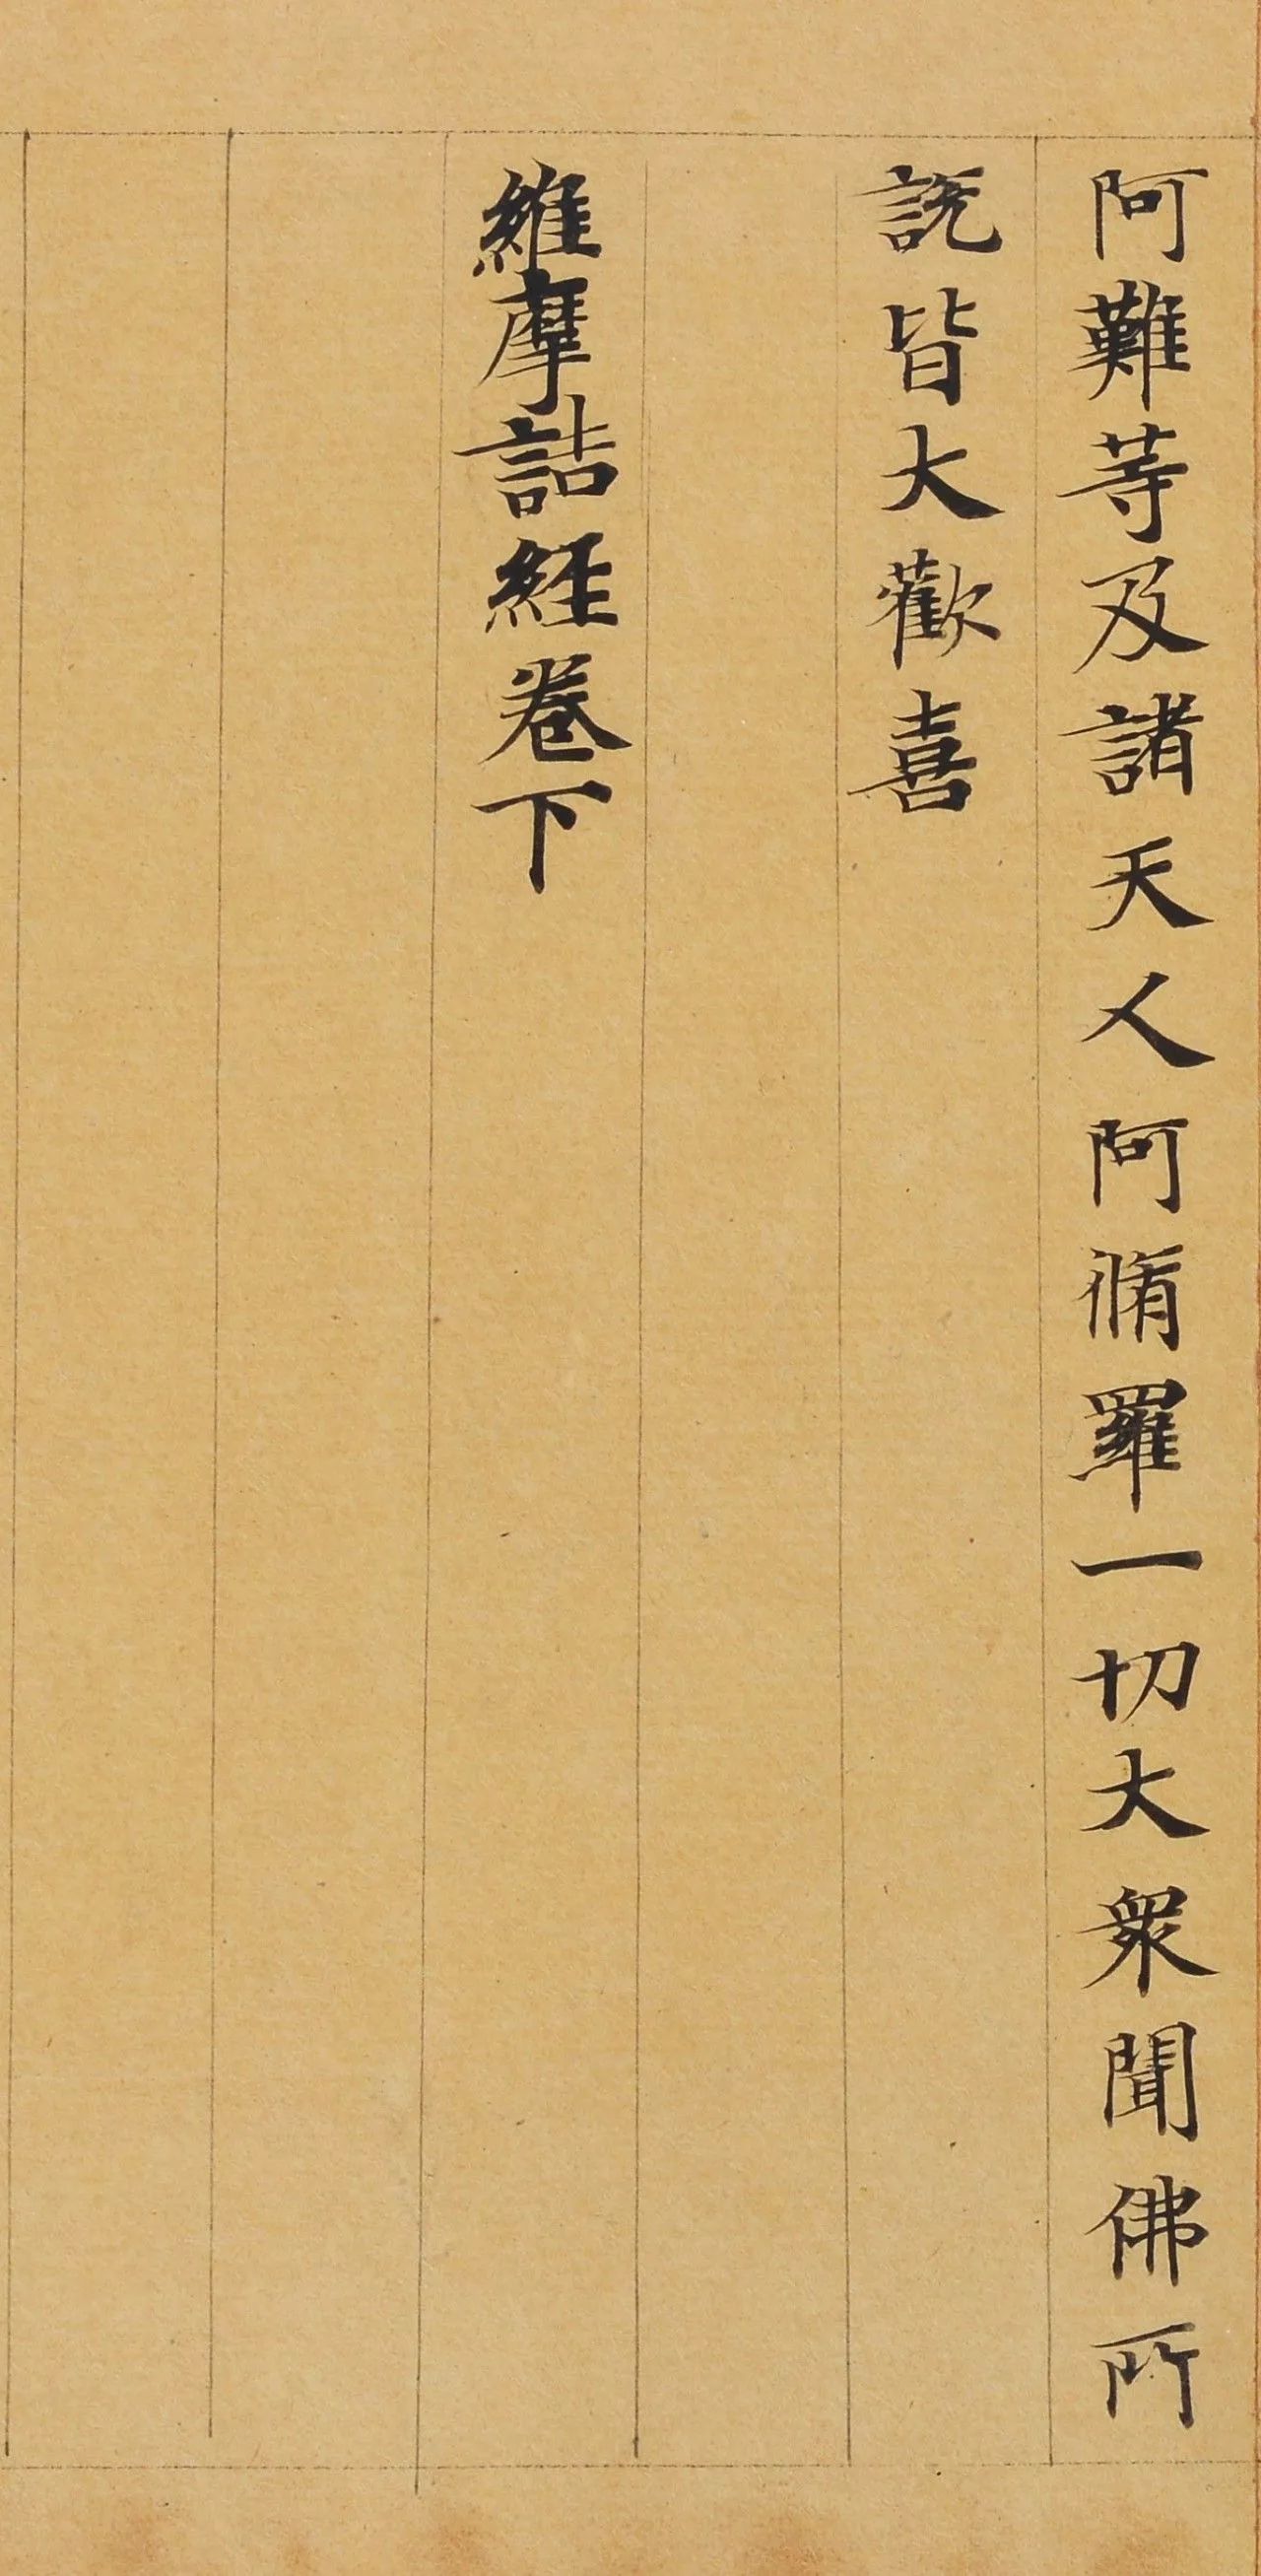 阿難等及諸天人阿脩羅一切大衆聞佛所
説皆大歡喜
維摩詰経卷下